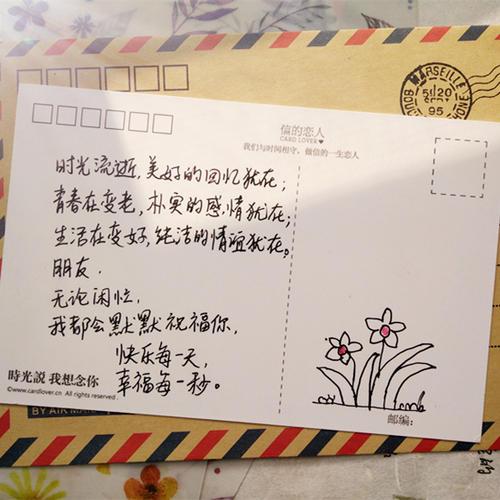 MARSEILLE
信的恋人
CARD LOVER
我们与时间相守，做信的一生恋人
时光流逝，美好的回忆犹在；
青春在变老，朴实的感情犹在；
生活在变好，纯洁的情谊犹在。
朋友，
无论闲忙，
我都会默默祝福你，
快乐每一天，
幸福每一秒。
時光説 我想念你
©www.cardlover.cn All rights reserved.
邮编：
BY AIR